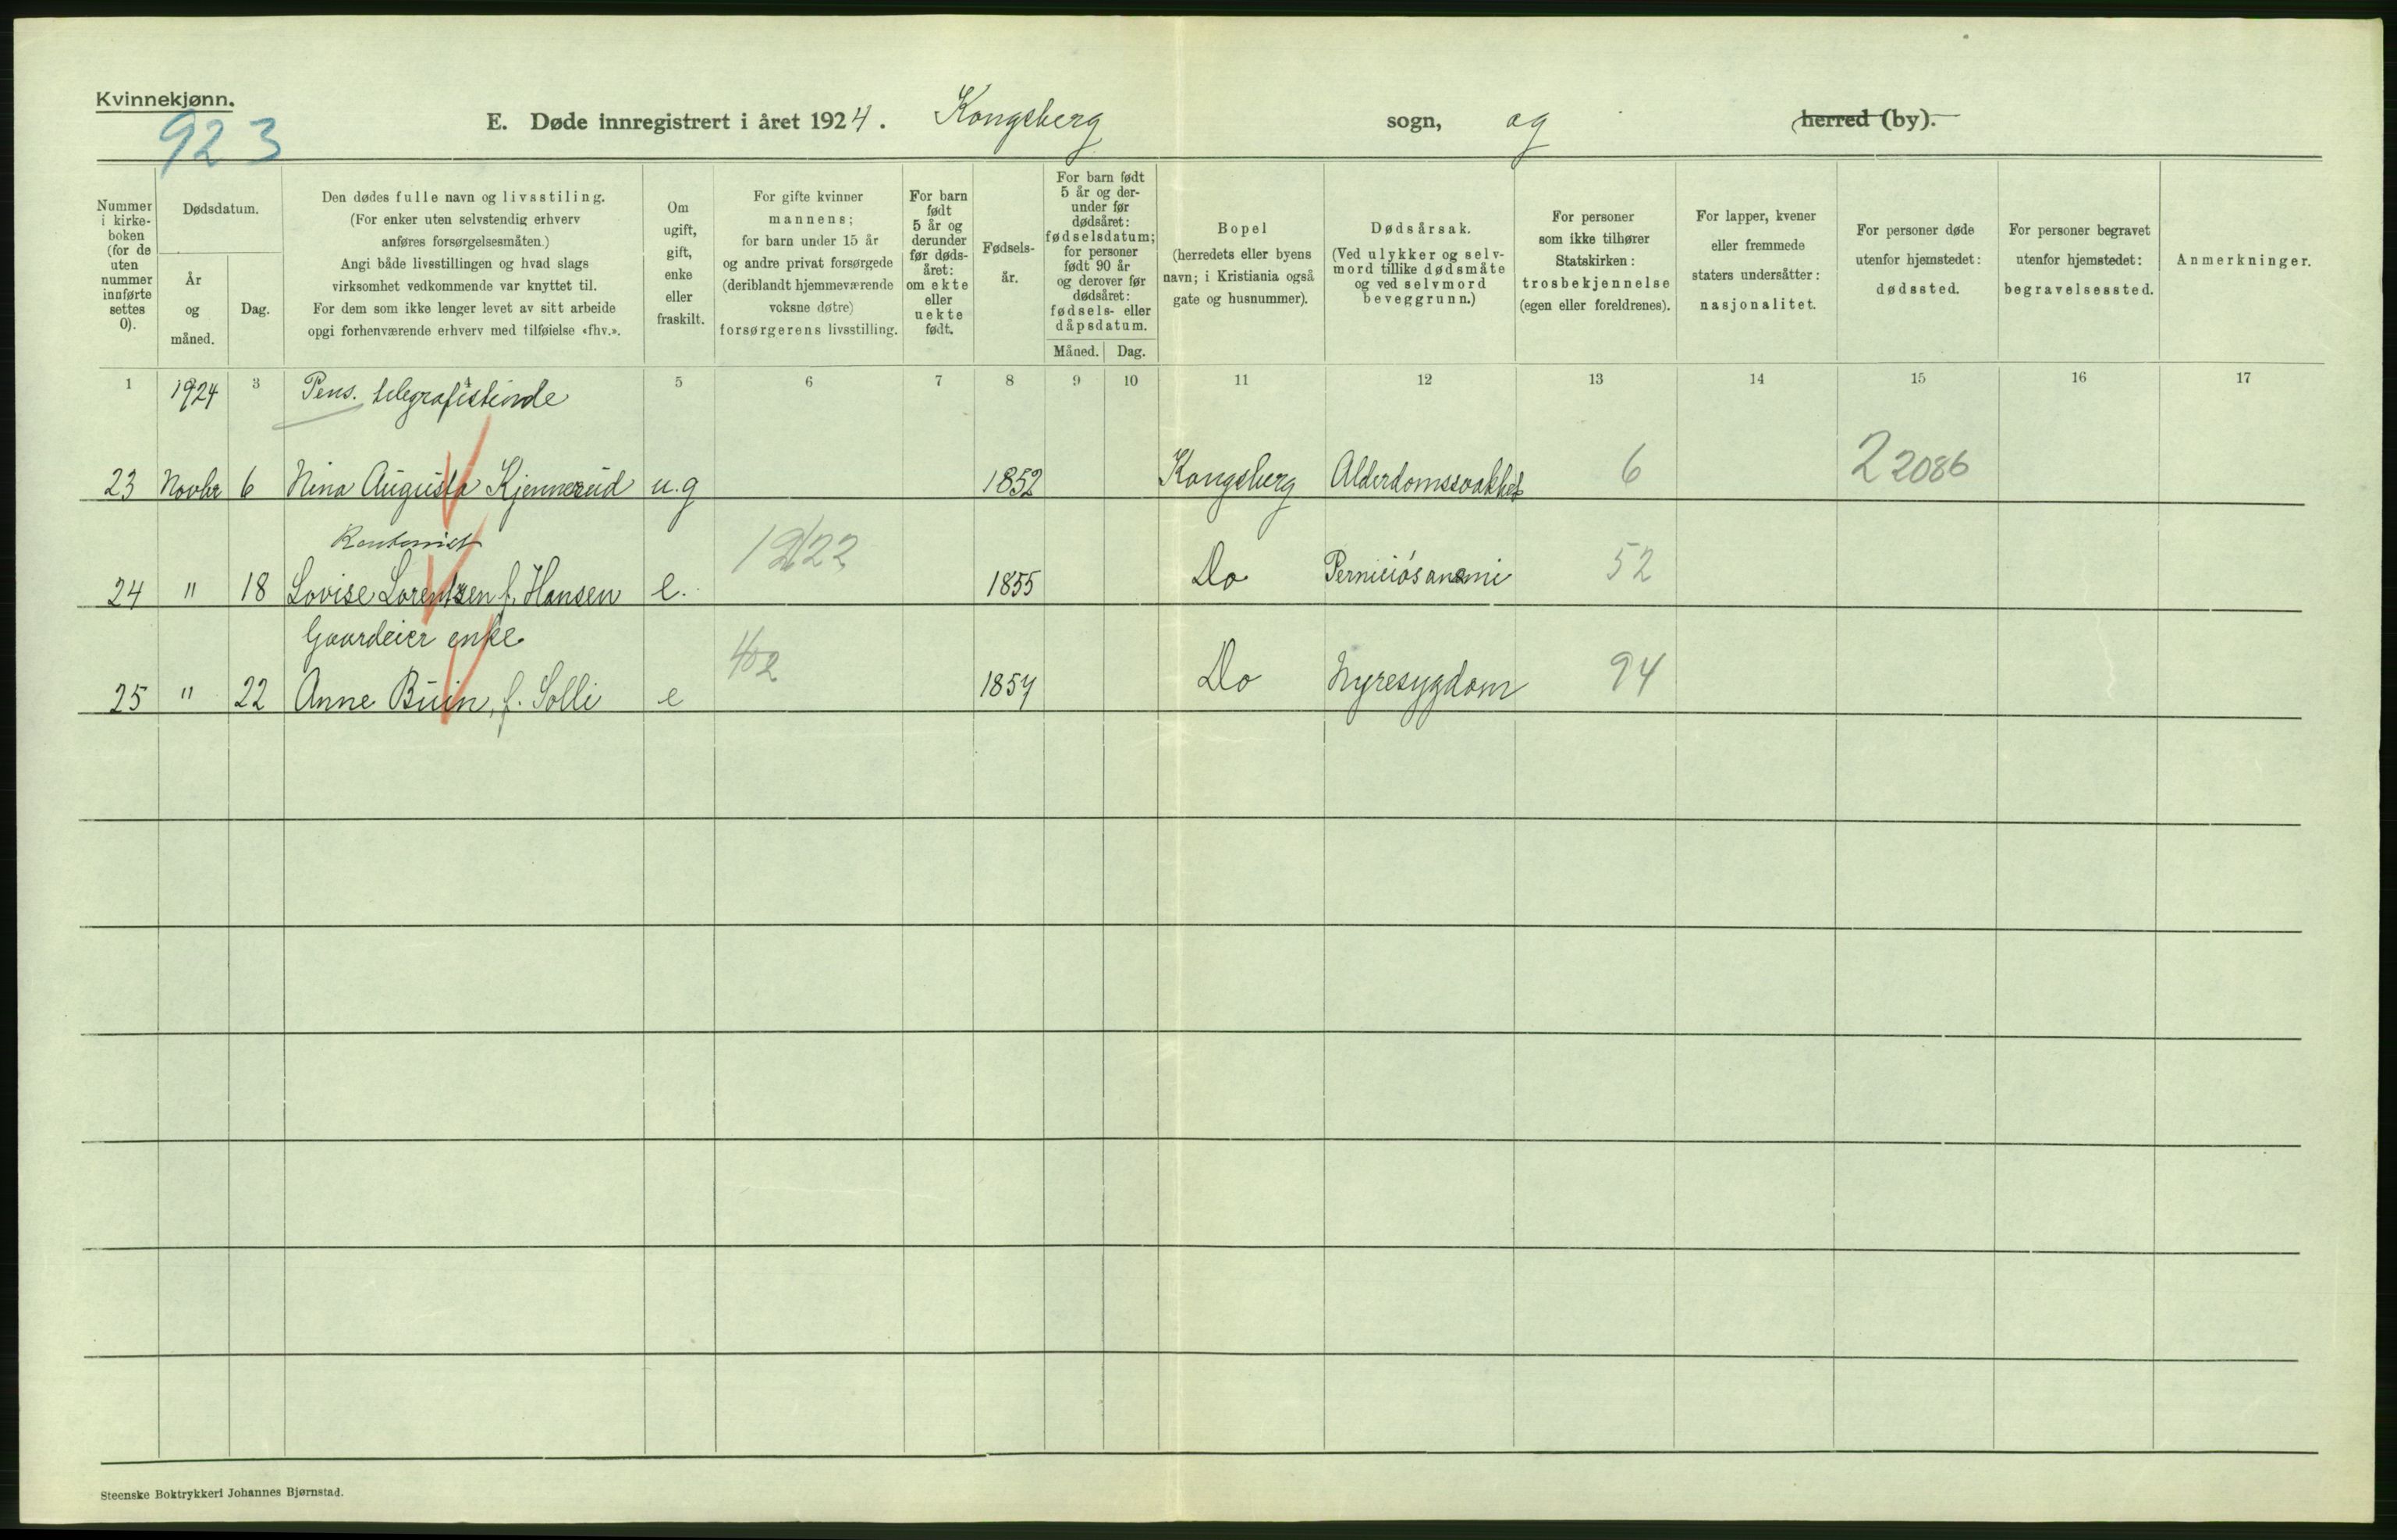 Kvinnekjønn.
923
E. Døde innregistrert i året 1924. Kongsberg sogn, og herred (by).
Nummer i kirke-boken (for de uten nummer innførte settes 0).
Dødsdatum.
År og måned.
Dag.
Den dødes fulle navn og livsstiling.
(For enker uten selvstendig erhverv
anføres forsørgelsesmåten.)
Angi både livsstillingen og hvad slags
virksomhet vedkommende var knyttet til.
For dem som ikke lenger levet av sitt arbeide
opgi forhenværende erhverv med tilføielse «fhv.».
Om
ugift,
gift,
enke
eller
fraskilt.
For gifte kvinner
mannens;
for barn under 15 år
og andre privat forsørgede
(deriblandt hjemmeværende
voksne døtre)
forsørgerens livsstilling.
For barn
født
5 år og
derunder
før døds-
året:
om ekte
eller
uekte
født.
Fødsels-
år.
For barn født
5 år og der-
under før
dødsåret:
fødselsdatum;
for personer
født 90 år
og derover før
dødsåret:
fødsels- eller
dåpsdatum.
Måned. Dag.
Bopel
(herredets eller byens
navn; i Kristiania også
gate og husnummer).
Dødsårsak.
(Ved ulykker og selv-
mord tillike dødsmåte
og ved selvmord
beveggrunn.)
For personer
som ikke tilhører
Statskirken:
trosbekjennelse
(egen eller foreldrenes).
For lapper, kvener
eller fremmede
staters undersåtter:
nasjonalitet.
For personer døde
utenfor hjemstedet:
dødssted.
For personer begravet
utenfor hjemstedet:
begravelsessted.
Anmerkninger.
1 3 4 5 6 7 8 9 10 11 12 13 14 15 16 17
1924 Pens. telegrafistinde
23 Novbr 6 Nina Augusta Kjennerud u.g 1852 Kongsberg Alderdomssvakhet 6 2 2086
24 " 18 Lovise Lorentzen f. Hansen e. 1855 Do Perniciøs anæmi 52
Gaardeier enke 402
25 " 22 Anne Buin, f. Solli e 1854 Do Nyresygdom 94
Steenske Boktrykkeri Johannes Bjørnstad.